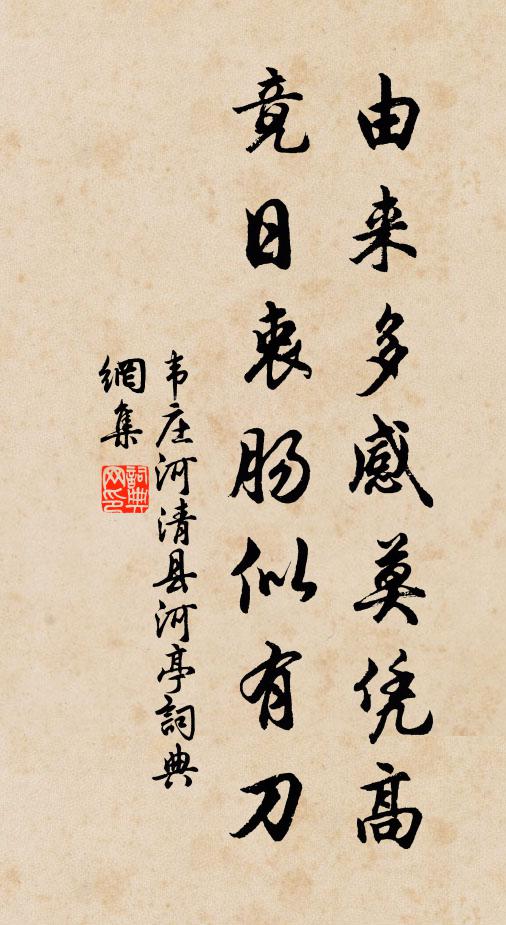 由来多感莫凭高
竟日衷肠似有刀
韦庄河清县河亭詞典
網集
詞典
网印